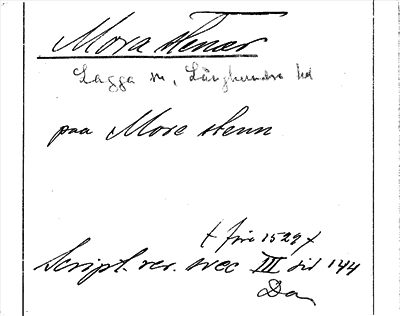 Mora stenar
Lagga sn, Långhundra hd
paa More stenn
(före 1529)
Script. rer. svec III sid 144
Da